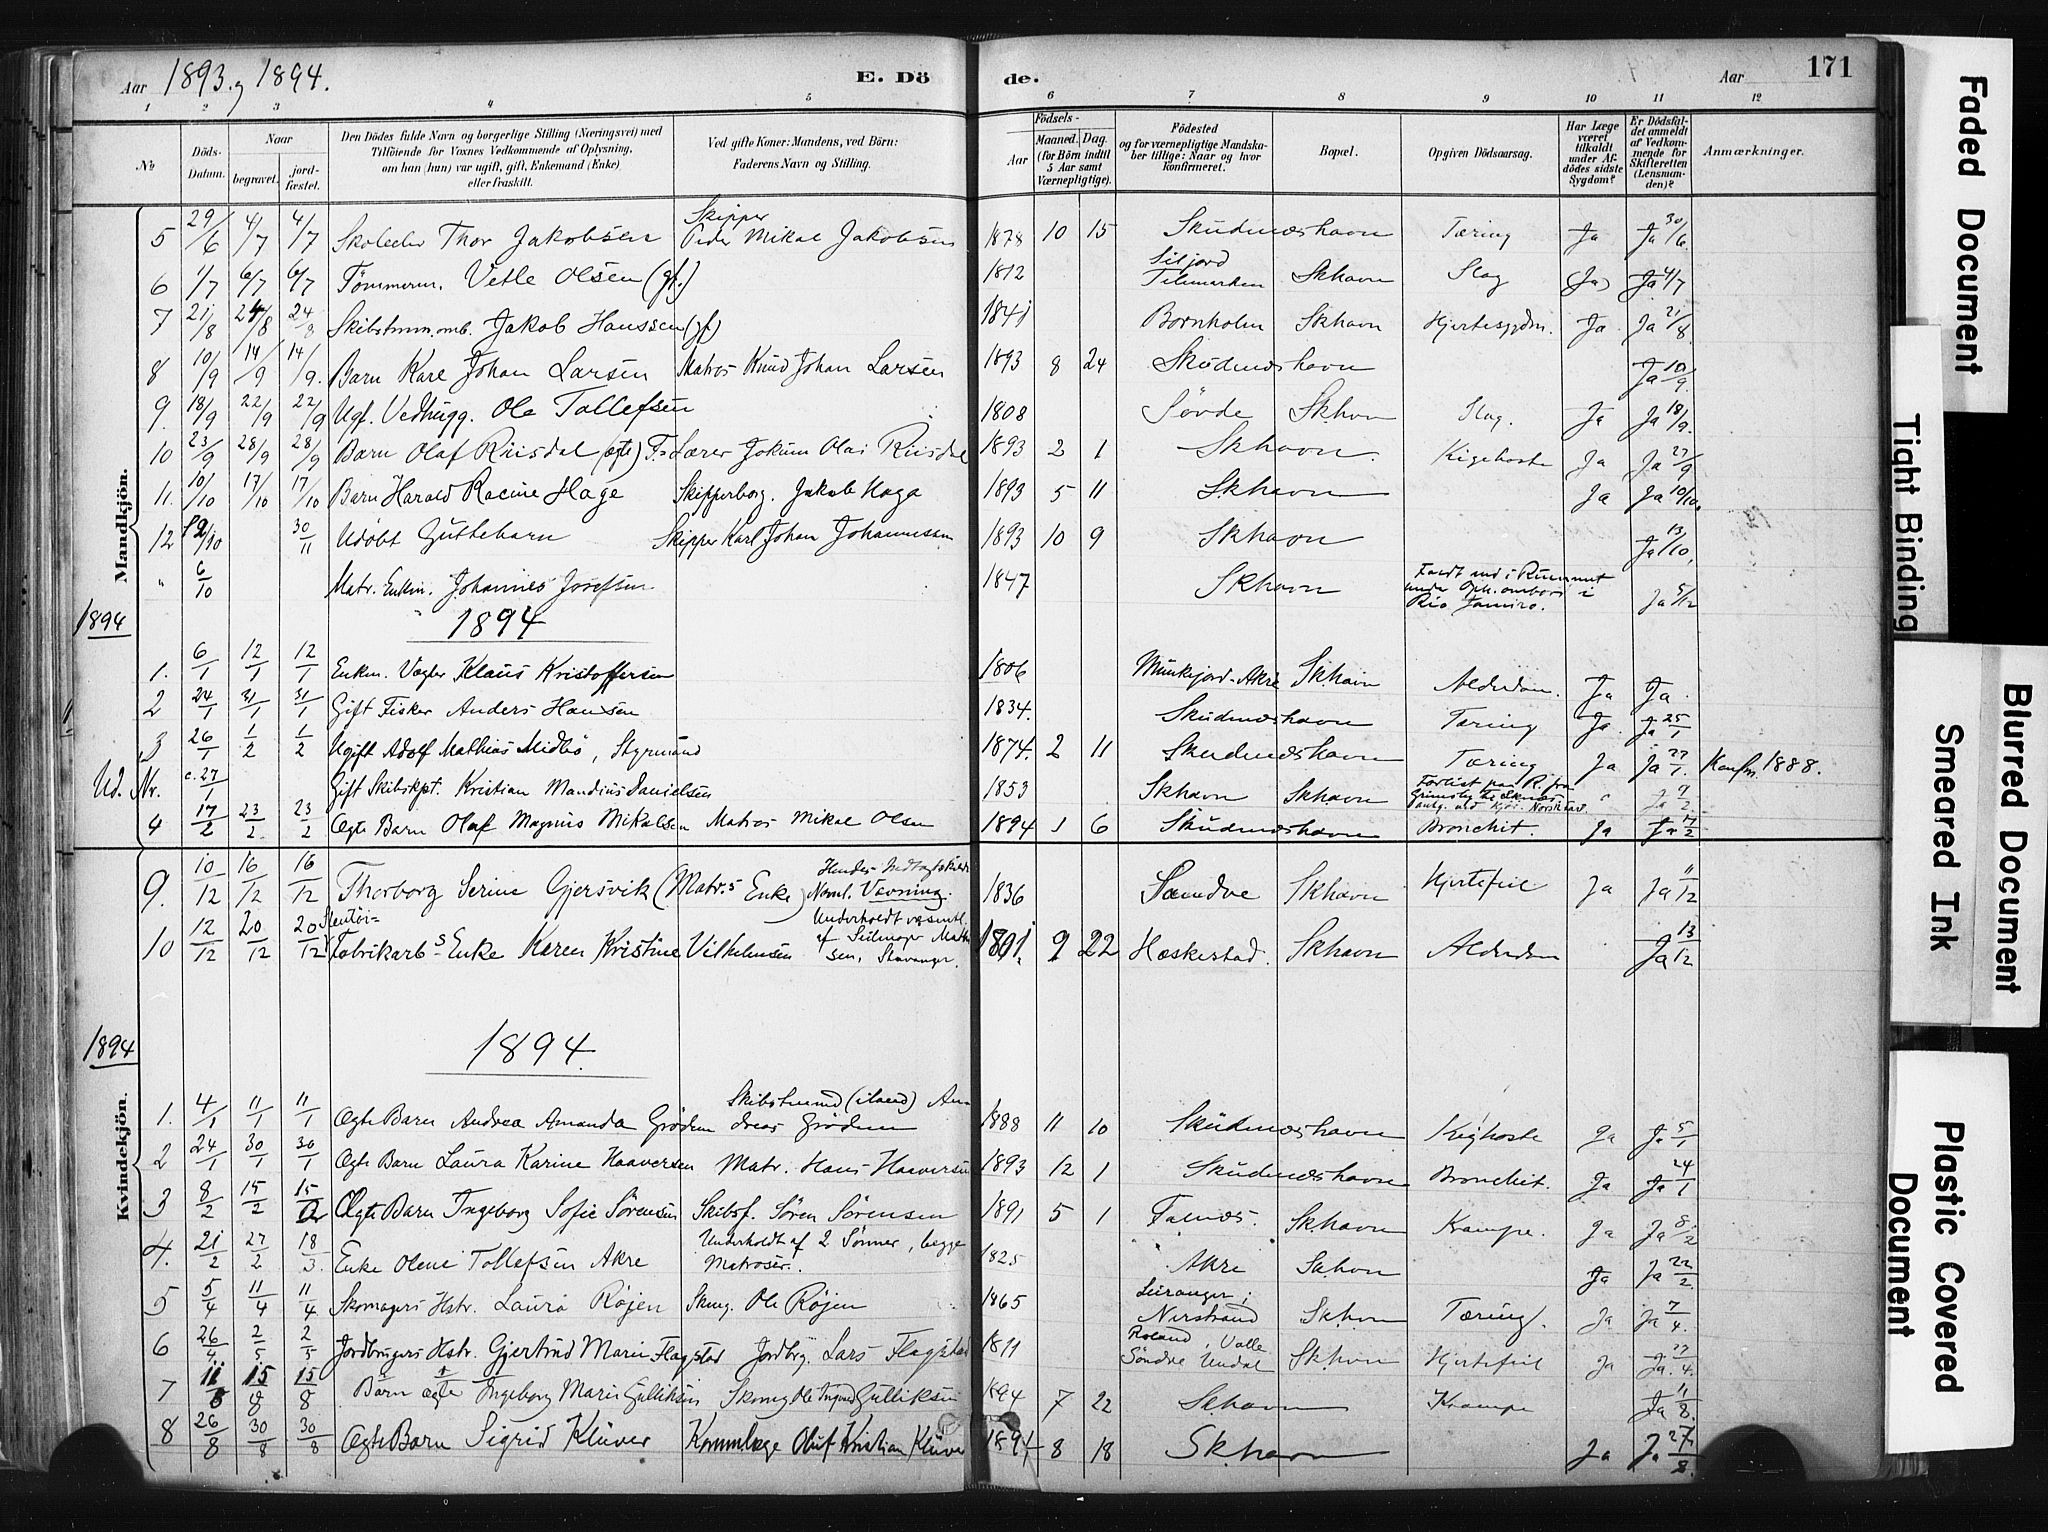 Aar 1893 og 1894. E. Döde. Aar 171
1 2 3 4 5 6 7 8 9 10 11 12
No Döds-Datum. Naar begravet. jord-fæstet. Den Dödes fulde Navn og borgerlige Stilling (Næringsvei) med Tilföiende for Voxnes Vedkommende af Oplysning, om han (hun) var ugift, gift, Enkemand (Enke) eller fraskilt. Ved gifte Koner: Mandens, ved Börn: Faderens Navn og Stilling. Födsels- Aar Maaned. Dag. (for Börn indtil 5 Aar samt Værnepligtige). Födested og for værnepligtige Mandska-ber tillige: Naar og hvor konfirmeret. Bopæl. Opgiven Dödsaarsag. Har Læge været tilkaldt under Af-dödes sidste Sygdom? Er Dödsfal-det anmeldt af Vedkom-mende for Skifteretten (Lensman-den)? Anmærkninger.
Mandkjön.
5 29/6 4/7 4/7 Skoleelev Thor Jakobsen Skipper Peder Mikal Jakobsen 1878 10 15 Skudneshavn Tæring Ja Ja 30/6
6 1/7 6/7 6/7 Tømmerm. Vetle Olsen (gf.) 1812 Siljord Telemarken Skhavn Slag (Ja) Ja 4/7
7 21/8 24/8 24/8 Skibstømm.omb. Jakob Hanssen (gf) 1841 Bornholm Skhavn Hjertesygdm. Ja Ja 21/8
8 10/9 14/9 14/9. Barn Karl Johan Larsen Matros Knud Johan Larsen 1893 8 24 Skudneshavn Ja 10/9
9. 18/9 22/9 22/9 Ugf. Vedhugg. Ole Tollefsen 1808 Søvde Skhvn Slag. Ja Ja 18/9.
10 23/9 28/9 28/9 Barn Olaf Riisdal (ægte) F: Lærer Jokum Olai Riisdal 1893 2 1 Skhavn. Kighoste Ja Ja 27/9
11. 10/10 17/10 17/10 Barn Harald Racine Hage Skipperborg. Jakob Haga 1893 5 11 Skhavn Ja Ja 10/10.
12 9/10 30/11 Udøbt Guttebarn Skipper Karl Johan Johannessen 1893 10 9 Skhavn Ja 13/10.
" 6/10 Matr. Enkm. Johannes Josefsen 1847 Skhavn Faldt ned i Rummet under Oph. ombord i Rio Janeiro. Ja 5/12
1894 1894
1. 6/1 12/1 12/1 Enkm. Vægter Klaus Kristoffersen 1806 Munkejord-Akre Skhavn Alderdom. Ja Ja.
2 24/1 31/1 31/1 Gift Fisker Anders Hansen 1834. Skudneshavn Tæring Ja. Ja 25/1
3 26/1 1/2 1/2 Ugift Adolf Mathias Midbø, Styrmand 1874. 2 11 Skudneshavn Tæring Ja Ja 27/1. Konfm. 1888.
Ud. Nr. c. 27/1 Gift Skibskpt. Kristian Mandius Danielsen 1853 Skhavn Skhavn Forlist paa R. fra Grimsby til antg. ved Kys. Nordhav. " Ja 9/2
4 17/2 23/2 23/2 Ægte Barn Olaf Magnus Mikalsen Matros Mikal Olsen 1894 1 6 Skudneshavn Bronchit. Ja Ja 17/2
9. 10/12 16/12 16/12 Thorborg Serine Gjersvik (Matr.s Enke) Hendes Indtægtskilde Noml. Vævning. 1836 Sandve Skhavn Hjertefeil Ja Ja 11/12
10 12/12 20/12 20/12 Stentøi-Fabrikarb.s Enke Karen Kristine Vilhelmsen Underholdt væsentl. af Seilmager Mathisen, Stavanger. 1801. 9 22 Heskestad. Skhavn Alderdom Ja 13/12
1894 1894.
Kvindekjön.
1. 4/1 11/1 11/1 Ægte Barn Andrea Amanda Grödem Skibstømmd (iland) Andreas Grödem 1888 11 10 Skudneshavn Kighoste Ja Ja 5/1
2 24/1 30/1 30/1 Ægte Barn Laura Karine Haaversen Matr. Hans Haaversen 1893 12 1 Skudneshavn Bronchit. Ja Ja 24/1
3 8/2 15/2 15/2 Ægte Barn Ingeborg Sofie Sørensen Skibsf. Søren Sørensen 1891 5 1 Falnes. Skhavn Krampe. Ja Ja 8/2
4. 21/2 27/2 18/3. Enke Olene Tollefsen Akre Underholdt af 2 Sønner, begge Matroser. 1825 Akre Skhvn Ja Ja 22/2
5 5/4 11/4 11/4 Skomagers Hstr. Laura Röjen Skmg. Ole Röjen 1865 Leiranger i Nerstrand Skhvn Tæring. Ja Ja 7/4.
6 26/4 2/5 2/5 Jordbrugers Hstr. Gjertrud Marie Flagstad Jordbrg. Lars Flagstad 1811 Roland, Valle Søndre Undal Skhvn Hjertefeil Ja Ja 27/4.
7 11/8 15/8 15/8 Barn ægte Ingeborg Marie Gulliksen Skomg Ole Ingvald Gulliksen 1894 7 22 Skhavn Krampe Ja 11/8.
8 26/8 30/8 30/8 Ægte Barn Sigrid Klüver Kommlæge Oluf Kristian Klüver 1894 8 18 Skhavn Ja Ja 27/8.
Faded Document
Tight Binding
Blurred Document
Smeared Ink
Plastic Covered Document